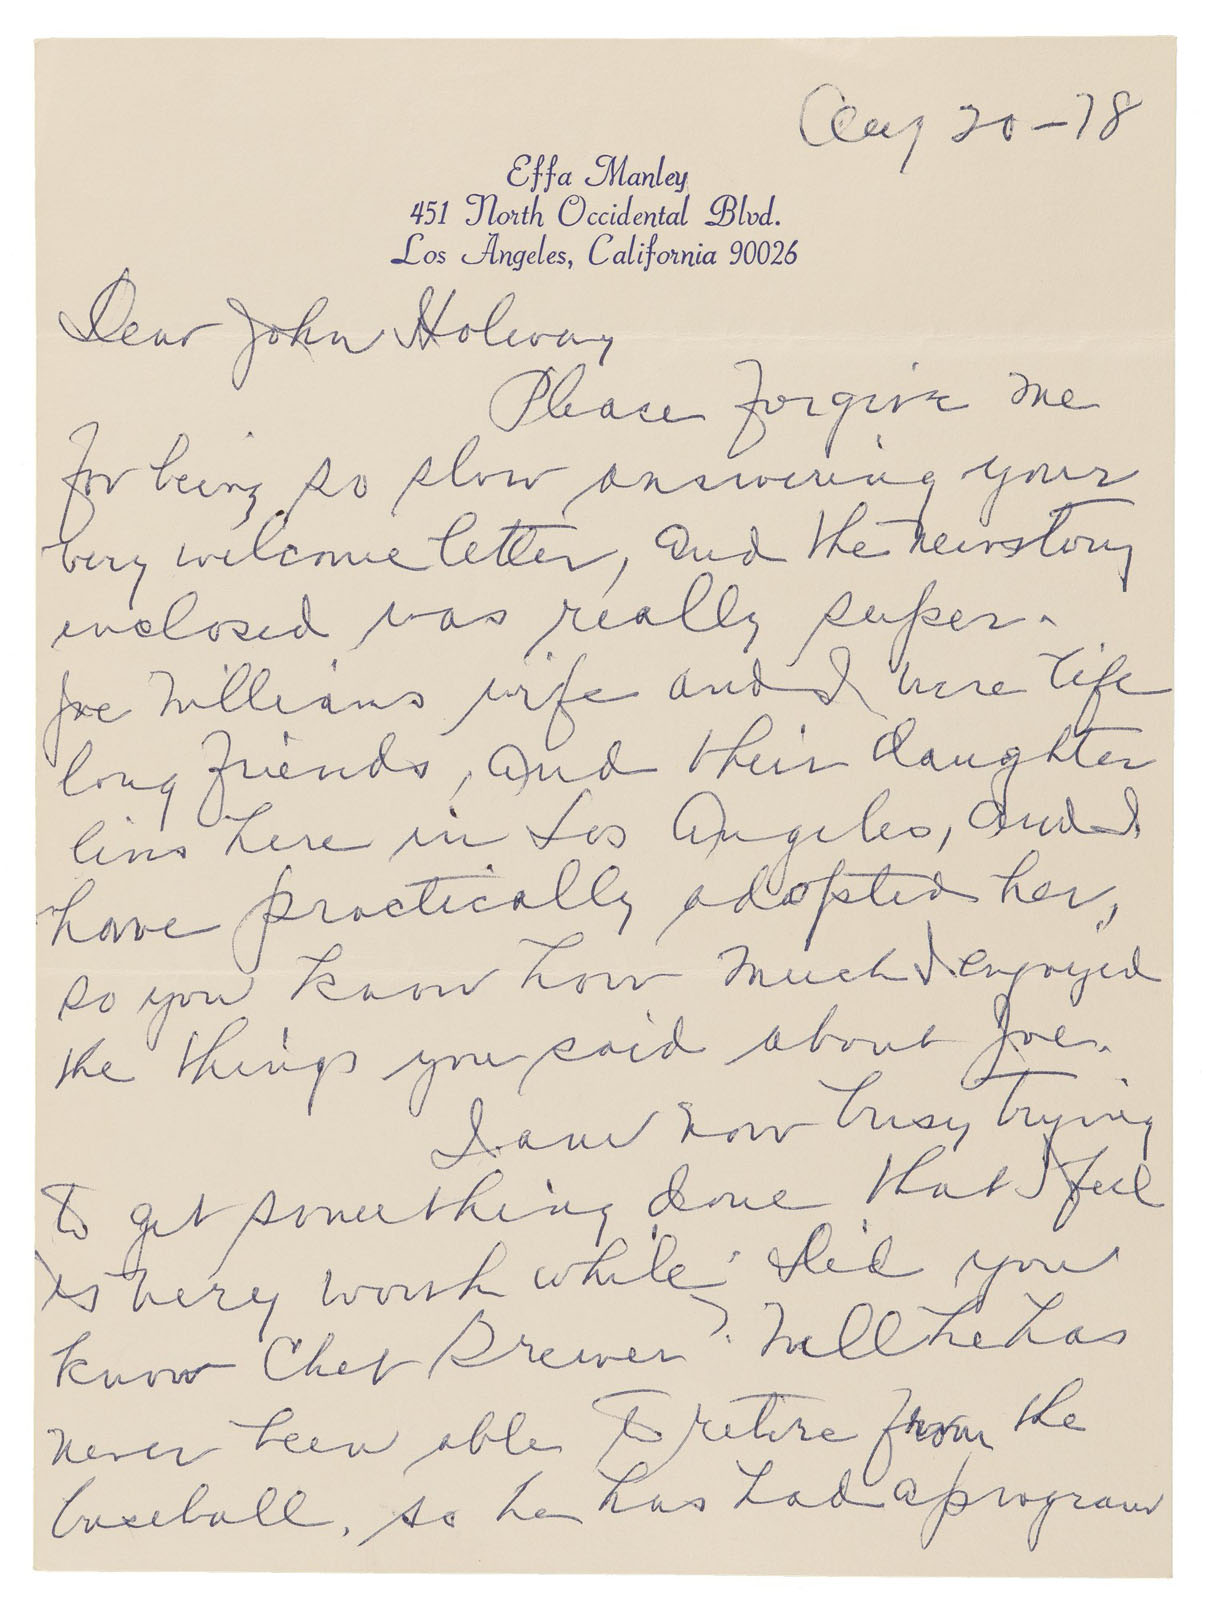 Aug 20-78
Effa Manley
451 North Occidental Blvd.
Los Angeles, California 90026
Dear John Holway
Please forgive me
for being so slow answering your
very welcome letter, and the newstory
enclosed was really super.
Joe Williams wife and I were life
long friends, and their daughter
livs here in Los Angeles, and I
have practically adopted her,
so you know how much I enjoyed
the things you said about Joe.
I am now busy trying
to get something done that I feel
is very worth while. Did you
know Chet Brewer? Well he has
never been able to retire from the
baseball. so he has had a program